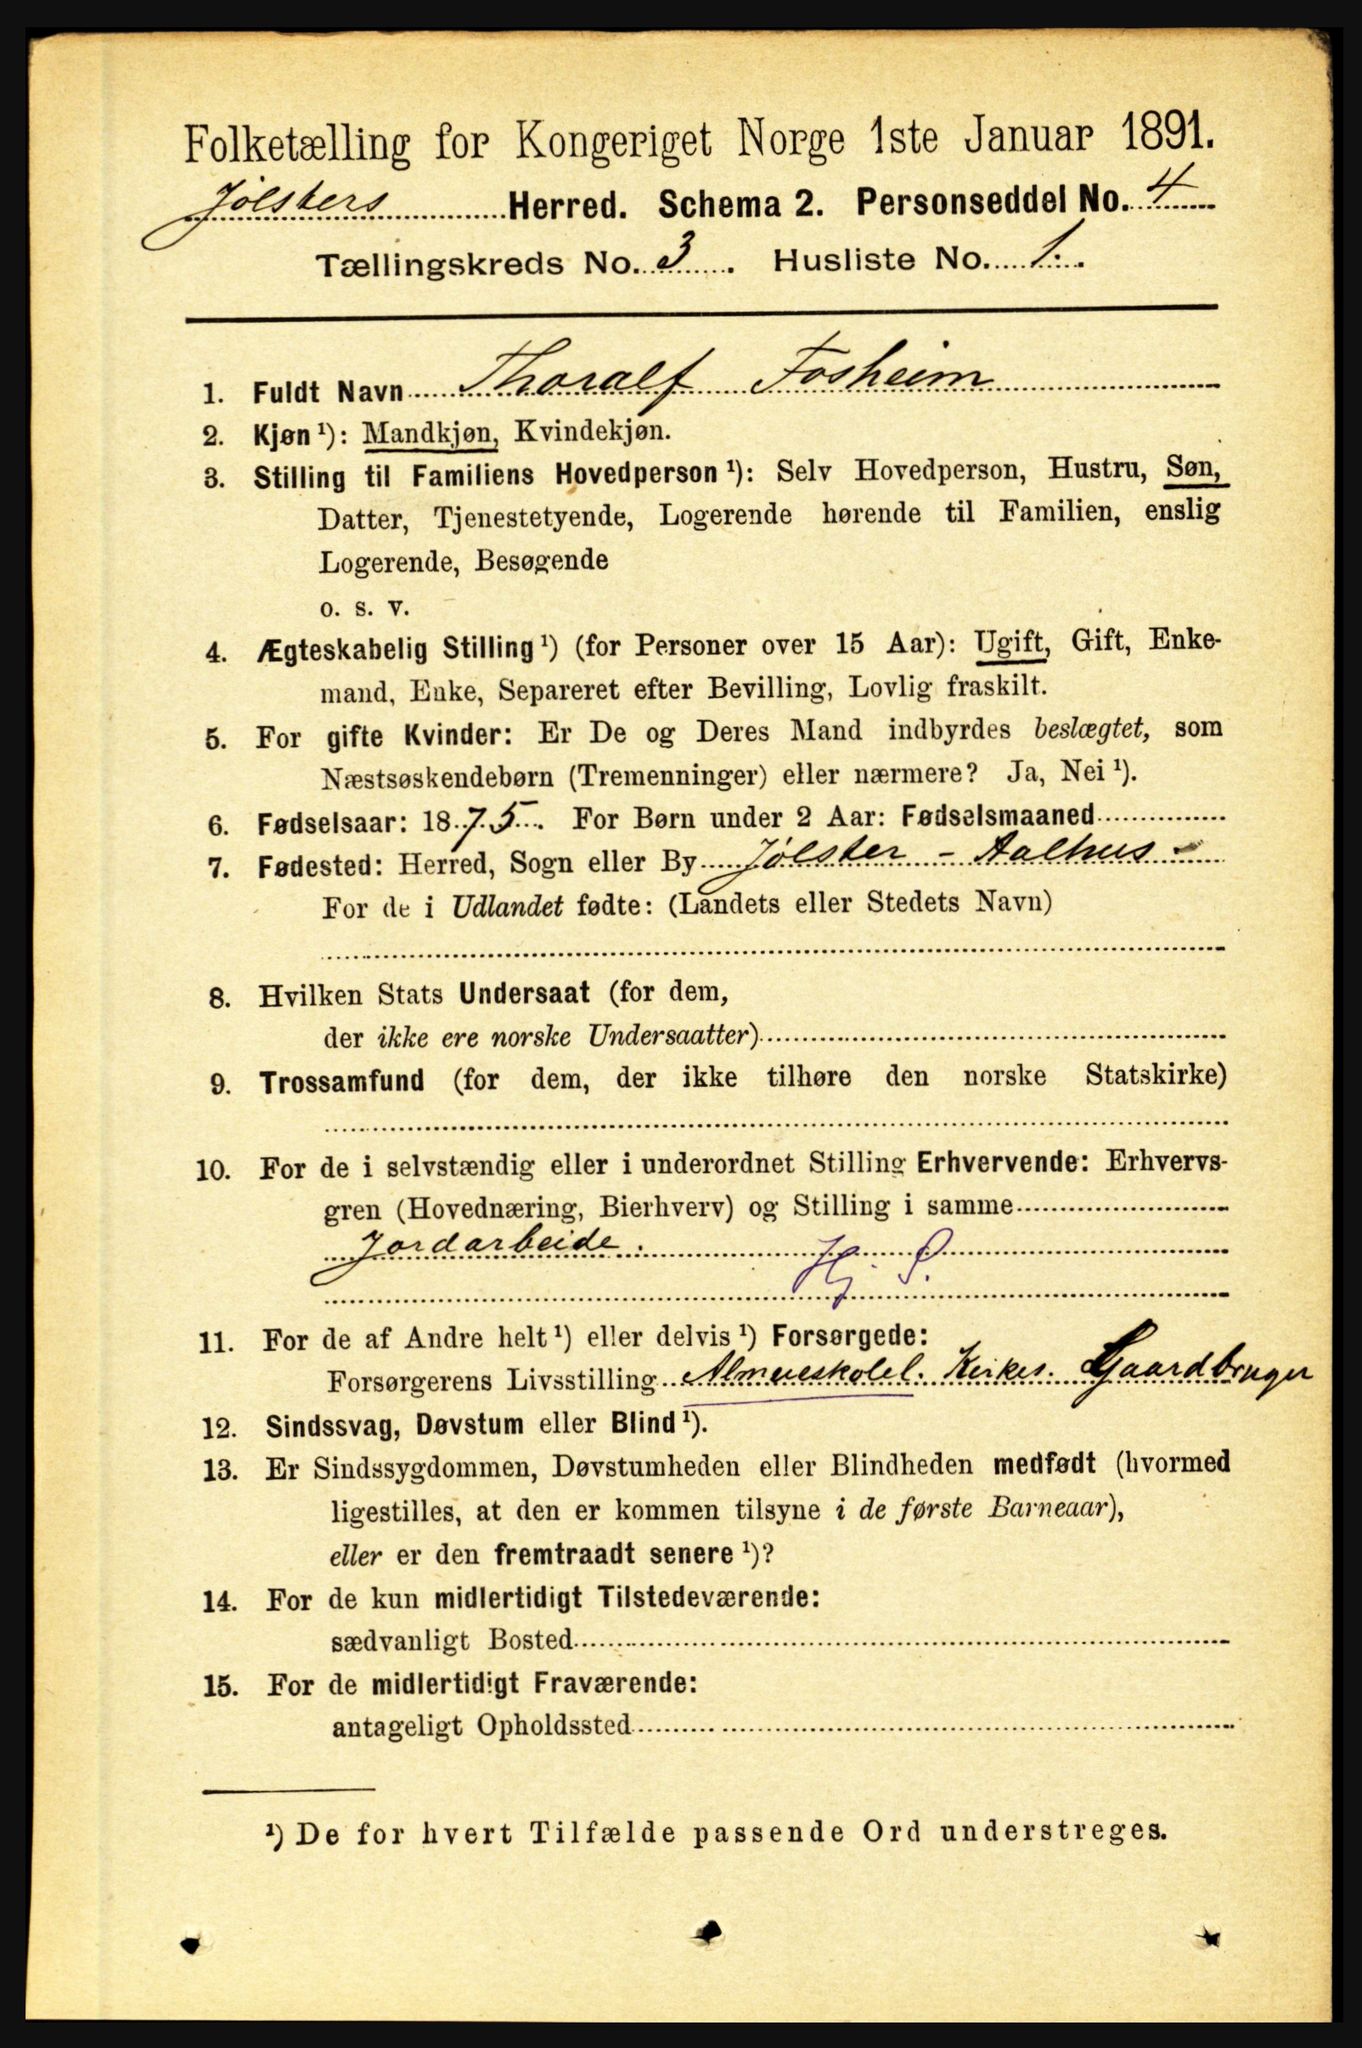 Folketælling for Kongeriget Norge 1ste Januar 1891.
Jølsters Herred. Schema 2. Personseddel No. 4
Tællingskreds No. 3. Husliste No. 1.
1. Fuldt Navn Thoralf Fosheim
2. Kjøn ¹): Mandkjøn, Kvindekjøn.
3. Stilling til Familiens Hovedperson ¹): Selv Hovedperson, Hustru, Søn,
Datter, Tjenestetyende, Logerende hørende til Familien, enslig
Logerende, Besøgende
o. s. v.
4. Ægteskabelig Stilling ¹) (for Personer over 15 Aar): Ugift, Gift, Enke-
mand, Enke, Separeret efter Bevilling, Lovlig fraskilt.
5. For gifte Kvinder: Er De og Deres Mand indbyrdes beslægtet, som
Næstsøskendebørn (Tremenninger) eller nærmere? Ja, Nei ¹).
6. Fødselsaar: 1875. For Børn under 2 Aar: Fødselsmaaned
7. Fødested: Herred, Sogn eller By Jølster - Aalhus -
For de i Udlandet fødte: (Landets eller Stedets Navn)
8. Hvilken Stats Undersaat (for dem,
der ikke ere norske Undersaatter)
9. Trossamfund (for dem, der ikke tilhøre den norske Statskirke)
10. For de i selvstændig eller i underordnet Stilling Erhvervende: Erhvervs-
gren (Hovednæring, Bierhverv) og Stilling i samme
Jordarbeide. Hj. S.
11. For de af Andre helt ¹) eller delvis ¹) Forsørgede:
Forsørgerens Livsstilling Almueskolel. Kirkes. Gaardbruger
12. Sindssvag, Døvstum eller Blind ¹).
13. Er Sindssygdommen, Døvstumheden eller Blindheden medfødt (hvormed
ligestilles, at den er kommen tilsyne i de første Barneaar),
eller er den fremtraadt senere ¹)?
14. For de kun midlertidigt Tilstedeværende:
sædvanligt Bosted
15. For de midlertidigt Fraværende:
antageligt Opholdssted
¹) De for hvert Tilfælde passende Ord understreges.